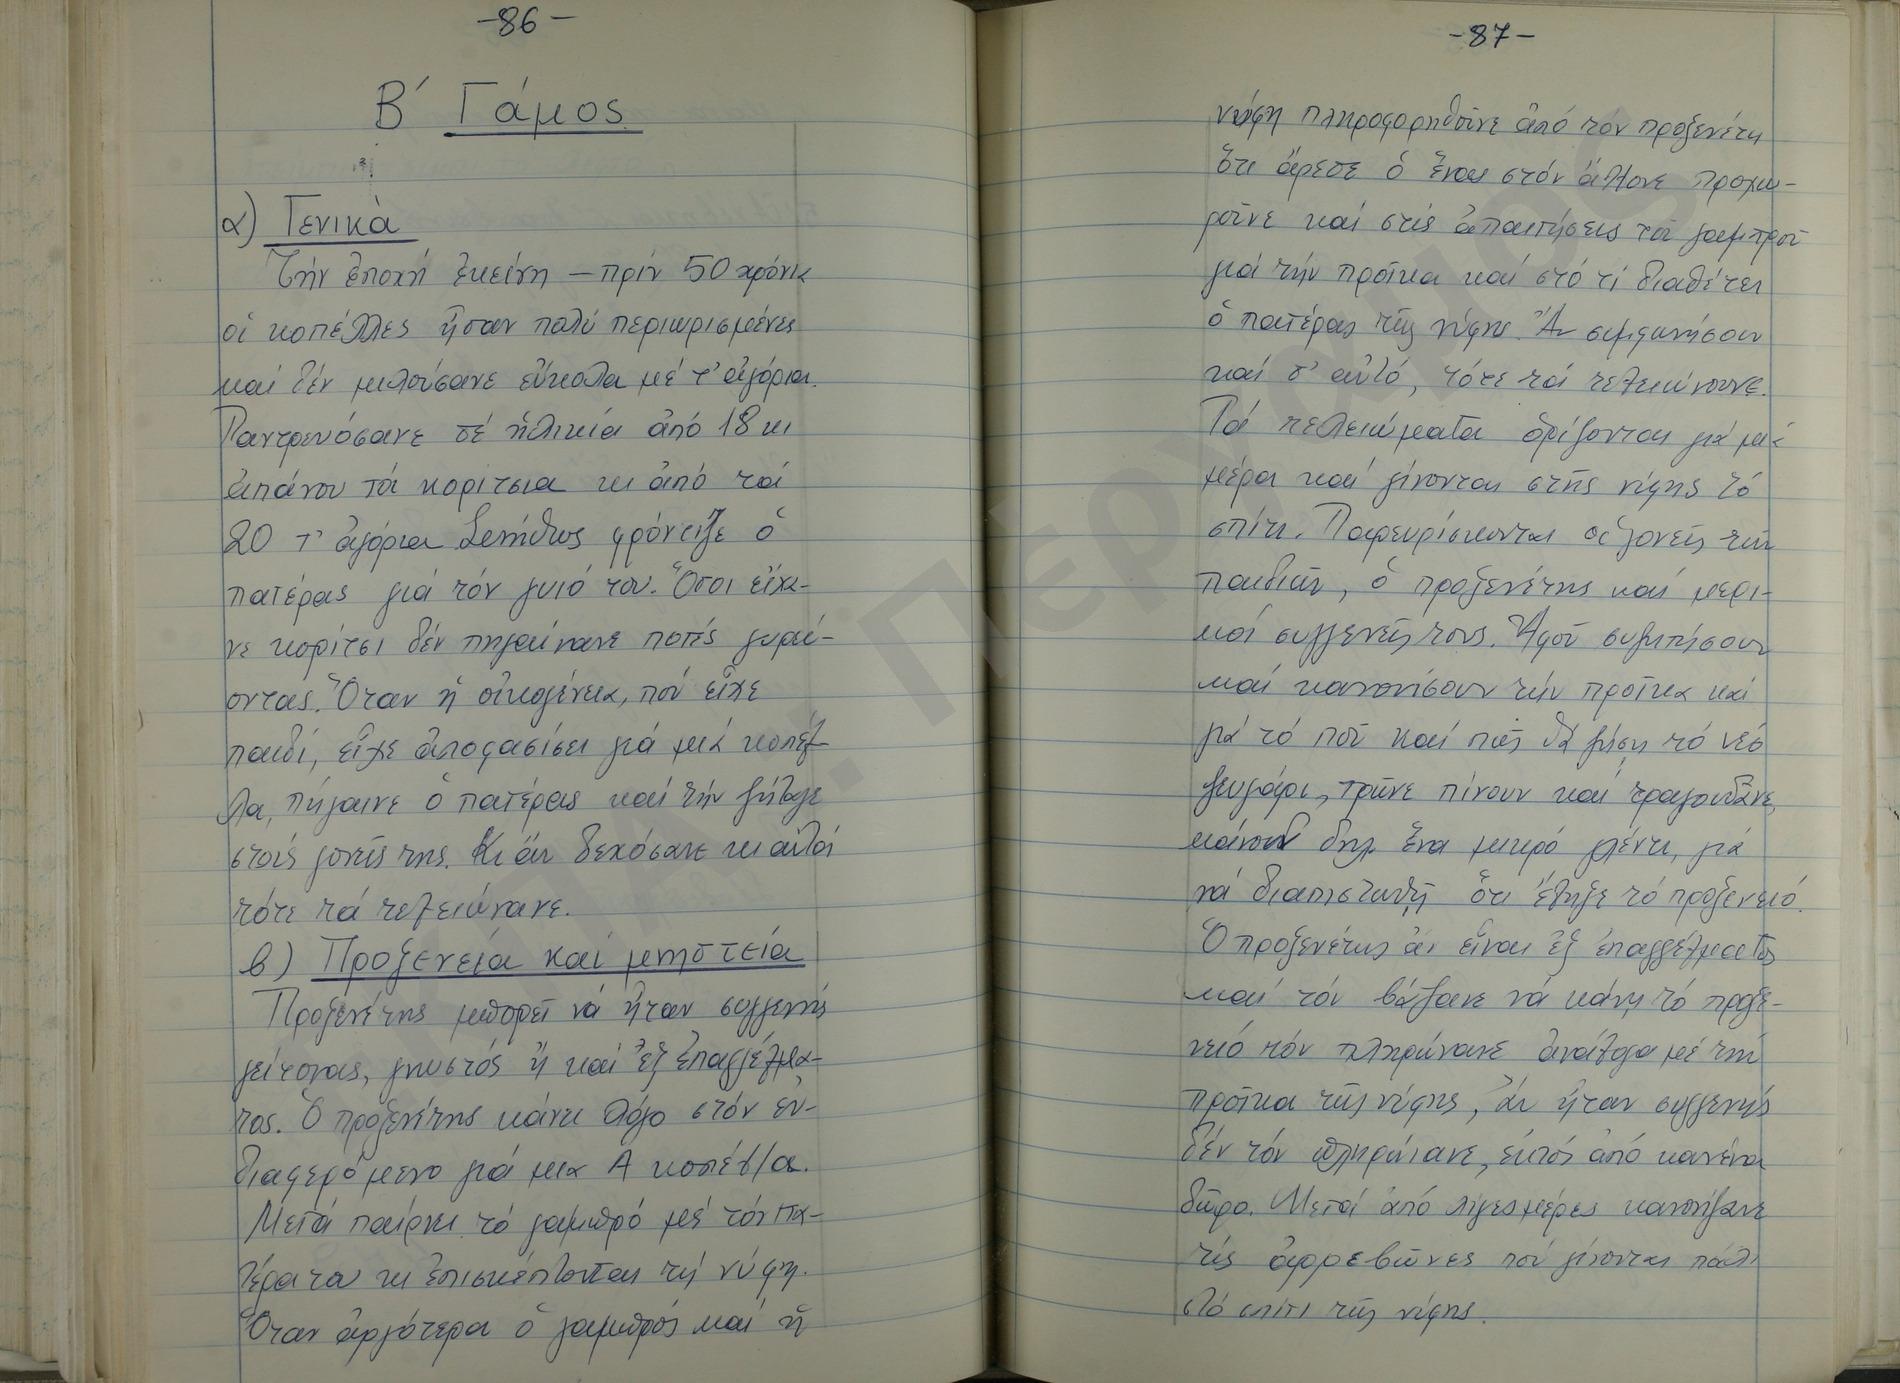 -86-
Β΄ Γάμος
α) Γενικὰ
Τήν ἐποχή ἐκείνη — πρίν 50 χρόνια
οἱ κοπέλλες ἦσαν πολύ περιωρισμένες
καί δέν μιλούσανε εὔκολα μέ τ' ἀγόρια.
Παντρευόσανε σέ ἡλικία ἀπό 18 κι
ἀπάνου τά κορίτσια κι ἀπό τά
20 τ' ἀγόρια Συνήθως φρόντιζε ὁ
πατέρας γιά τόν γυιό του. Ὅσοι εἴχα-
νε κορίτσι δέν πηγαίνανε ποτές γυρεύ-
οντας. Ὅταν ἡ οἰκογένεια, πού εἶχε
παιδί, εἶχε ἀποφασίσει γιά μιά κοπέλ-
λα, πήγαινε ὁ πατέρας καί τήν ζήταγε
στούς γονεῖς της. Κι ἄν δεχόσανε κι αὐτοί
τότε τά τελειώνανε.
β) Προξενειά καί μνηστεία
Προξενέτης μπορεῖ νά ἦταν συγγενής
γείτονας, γνωστός ἤ καί ἐξ ἐπαγγέλμα-
τος. Ὁ προξενέτης κάνει λόγο στόν ἐν-
διαφερόμενο γιά μια Α κοπέλλα.
Μετά παίρνει τό γαμπρό μέ τόν πα-
τέρα του κι ἐπισκέπτονται τή νύφη.
Ὅταν ἀργότερα ὁ γαμπρός καί ἡ
-87-
νύφη πληροφορηθοῦνε ἀπό τόν προξενέτη
ὅτι ἄρεσε ὁ ἕνας στόν ἄλλονε προχω-
ροῦνε καί στίς ἀπαιτήσεις τοῦ γαμπροῦ
γιά τήν προῖκα καί στό τί διαθέτει
ὁ πατέρας τῆς νύφης. Ἄν συμφωνήσουν
καί σ' αὐτό, τότε τά τελειώνουνε.
Τά τελειώματα ὁρίζονται γιά μιά
μέρα καί γίνονται στῆς νύφης τό
σπίτι. Παρευρίσκονται οἱ γονεῖς τῶν
παιδιῶν, ὁ προξενέτης καί μερι-
κοί συγγενεῖς τους. Ἀφοῦ συζητήσουν
καί κανονίσουν τήν προῖκα καί
γιά τό ποῦ καί πῶς θά ζήσῃ τό νέο
ζευγάρι, τρῶνε πίνουν καί τραγουδᾶνε,
κάνουν δηλ ἕνα μικρό γλέντι, γιά
νά διαπιστωθῇ ὅτι ἔληξε τό προξενειό.
Ὁ προξενέτης ἄν εἶναι ἐξ ἐπαγγέλματος
καί τόν βάζανε νά κάνῃ τό προξε-
νειό τόν πληρώνανε ἀνάλογα μέ τήν
προῖκα τῆς νύφης, ἄν ἦταν συγγενής
δέν τόν πληρώνανε, ἐκτός ἀπό κανένα
δῶρο. Μετά ἀπό λίγες μέρες κανονίζανε
τίς ἀρρεβῶνες πού γίνονται πάλι
στό σπίτι τῆς νύφης.